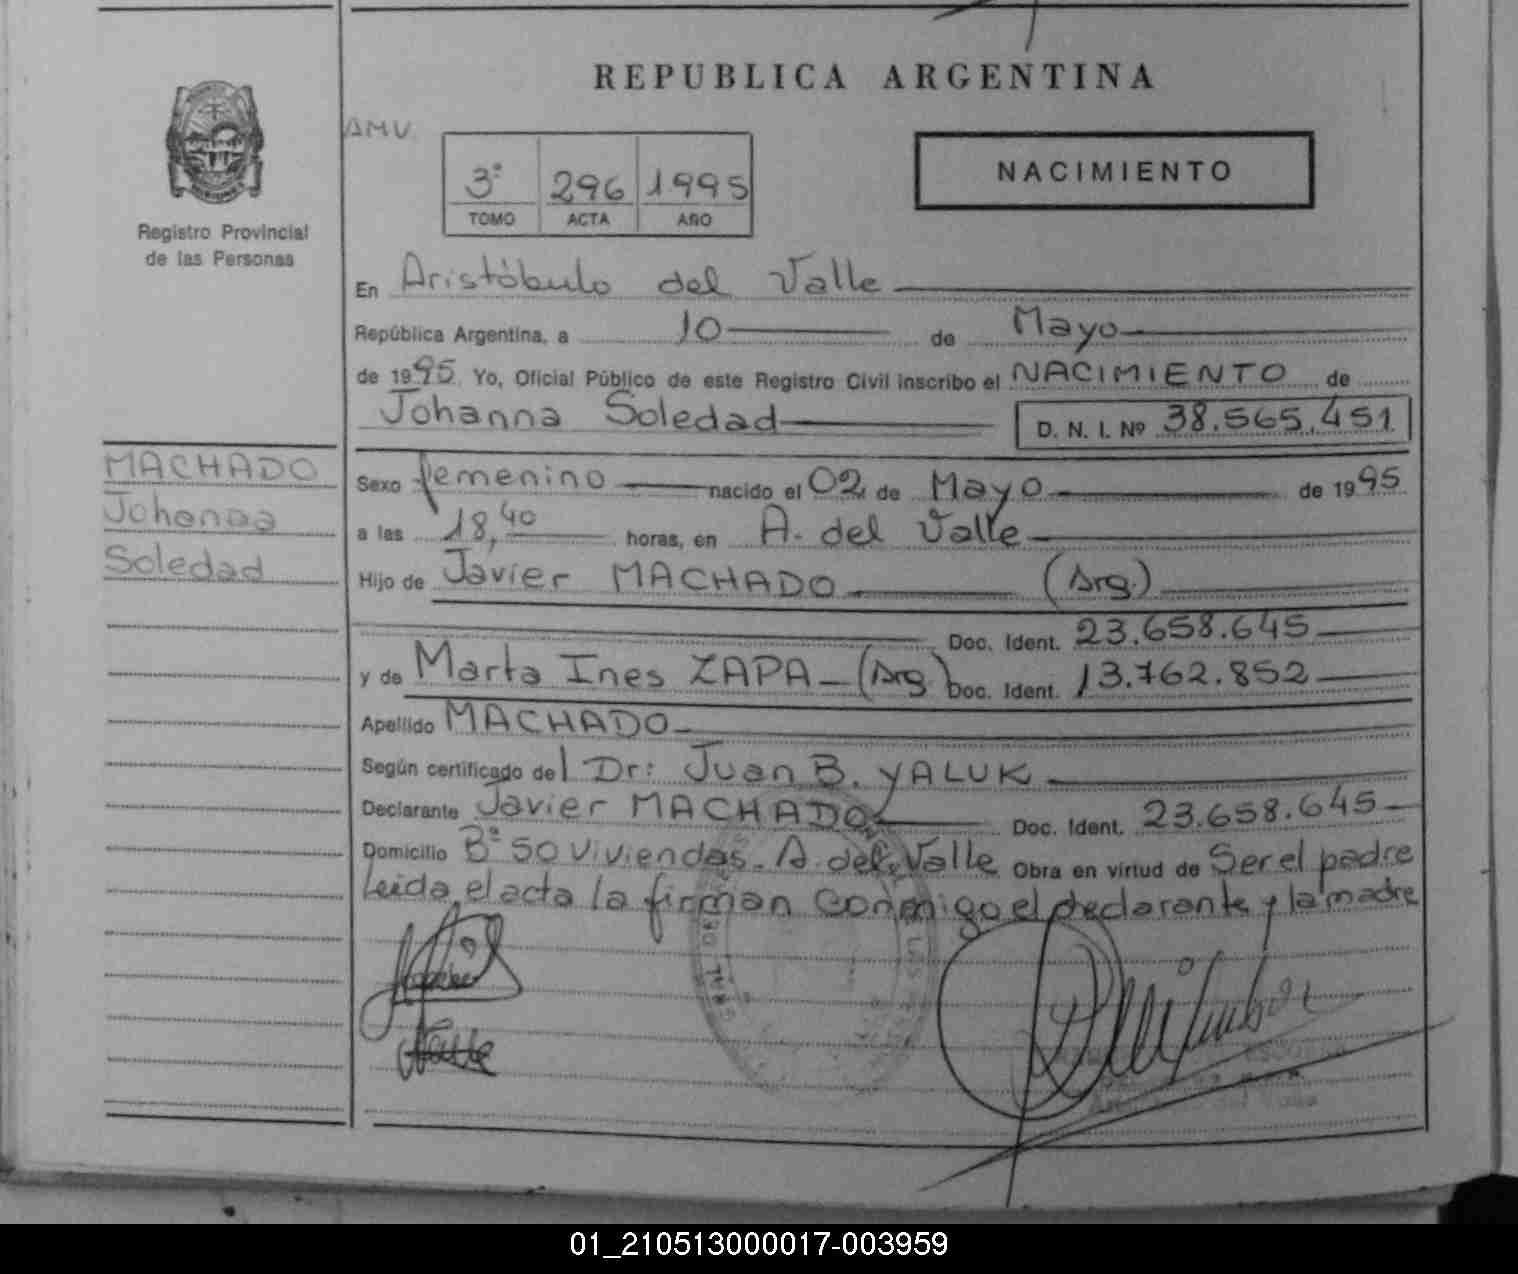 REPUBLICA ARGENTINA
Registro Provincial
de las Personas
AMV
3º 296 1995
TOMO ACTA AÑO
NACIMIENTO
En Aristóbulo del Valle
República Argentina, a 10 de Mayo
de 1995. Yo, Oficial Público de este Registro Civil inscribo el NACIMIENTO de
Johanna Soledad D. N. I. Nº 38.565.451
MACHADO
Johanna
Soledad
Sexo femenino nacido el 02 de Mayo de 1995
a las 18,40 horas, en A. del Valle
Hijo de Javier MACHADO (Arg.)
Doc. Ident. 23.658.645
y de Marta Ines ZAPA (Arg) Doc. Ident. 13.762.852
Apellido MACHADO
Según certificado del Dr: Juan B. YALUK
Declarante Javier MACHADO Doc. Ident. 23.658.645
Domicilio Bº 50 Viviendas. A. del Valle Obra en virtud de Ser el padre
Leida el acta la firman conmigo el declarante y la madre
01_210513000017-003959